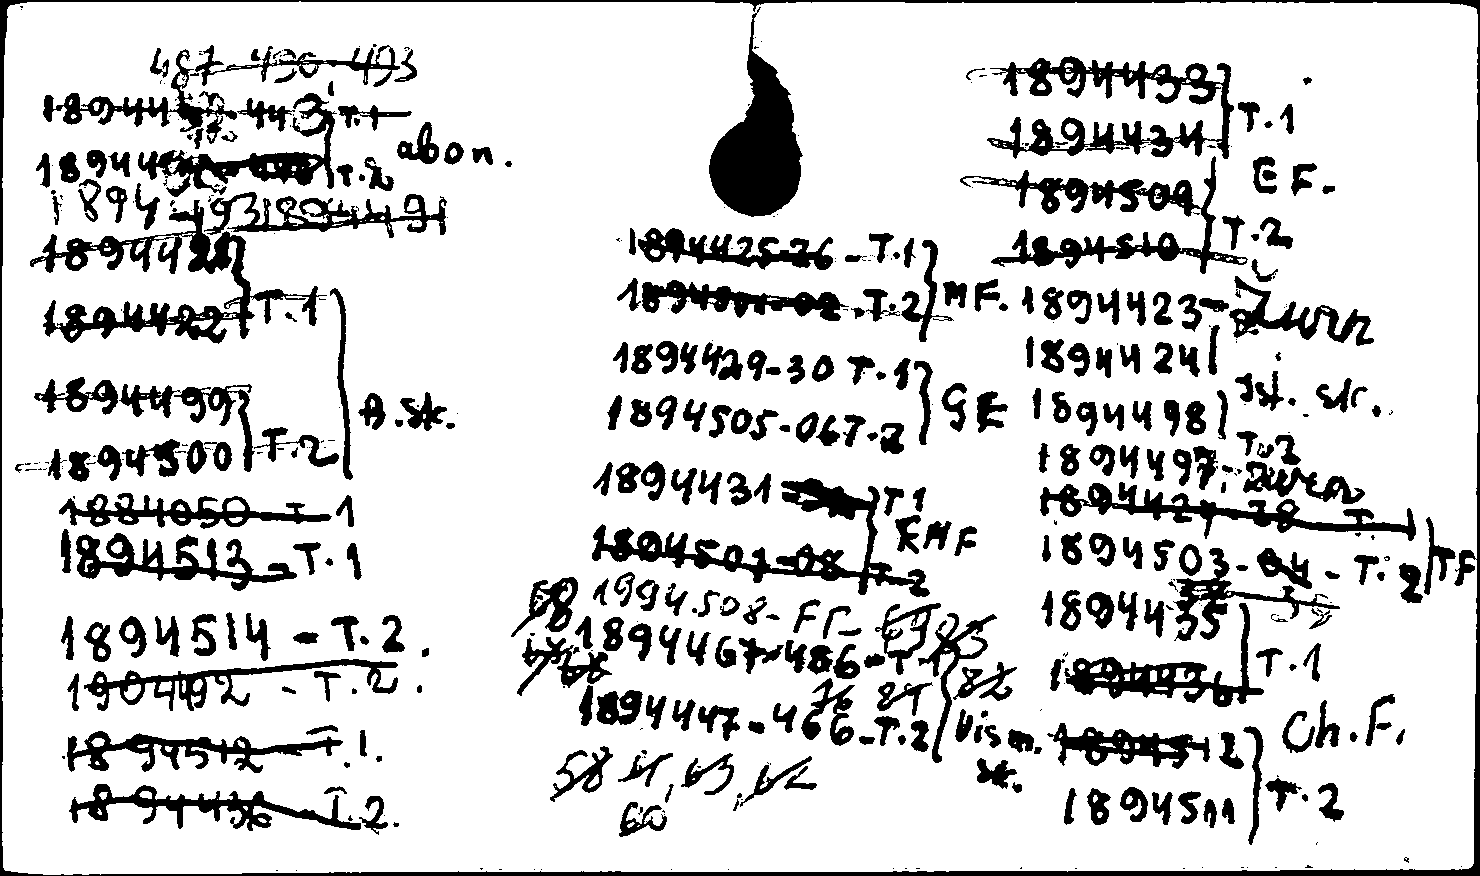 487-490-493
18944 443 T.1
18944 T.2
abon.
1894-493 1894491
1894421
1894422 T.1
1894499
1894500 T.2
B.sk.
1884050-T-1
1894513-T.1
1894514-T.2.
1904492-T.2.
1894512-T.1.
1894436-T.2.
1894425-26-T.1
1894501-02.T.2
MF.
1894429-30 T.1
1894505-06T.2
GE
1894431 T1
1894507-08 T.2
EMF
1994.508-Fr-
1894467-486-T.1
76 81 82
1894447-466-T.2
Vism. sk.
58 61, 63, 62
60
1894433
1894434 T.1
EF.
1894509
1894510 T.2
1894423-Žurn
1894424
Ist. str.
1894498
T.2
1894497-Žurn
1894427-28 T. 1
1894503-04-T.2
TF
1894435
1894436 T.1
Ch.F.
1894512
1894511 T.2